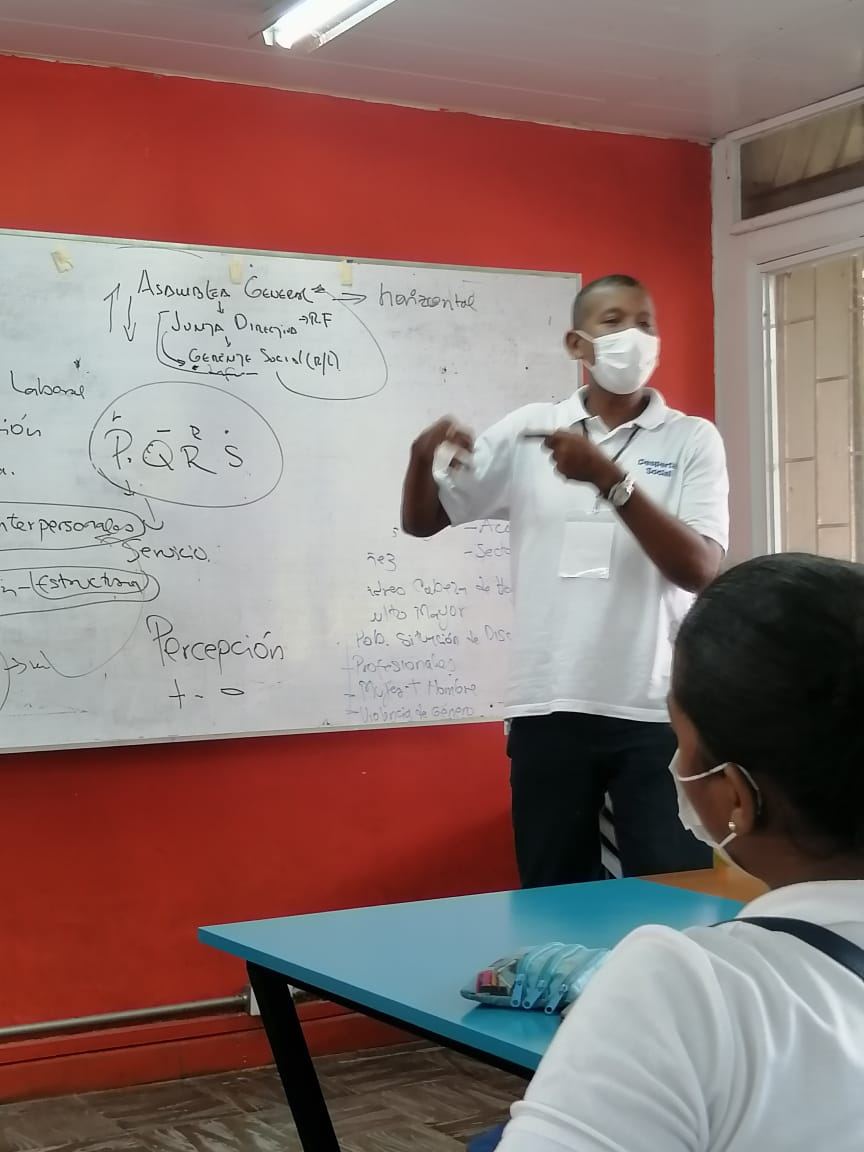 ASAMBLEA GENERAL → horizontal
JUNTA DIRECTIVA → RF
GERENTE SOCIAL (R/L)
Laboral
ión
P. Q R S
R
a.
nterpersonales
Servicio.
n-Estructura
Percepción
+ - 0
- Acc
- Secto
ñez
adres Cabeza de Ho
ulto Mayor
Pob. Situación de Disc
- Profesionales
- Mujer + Hombre
- Violencia de Género
Social